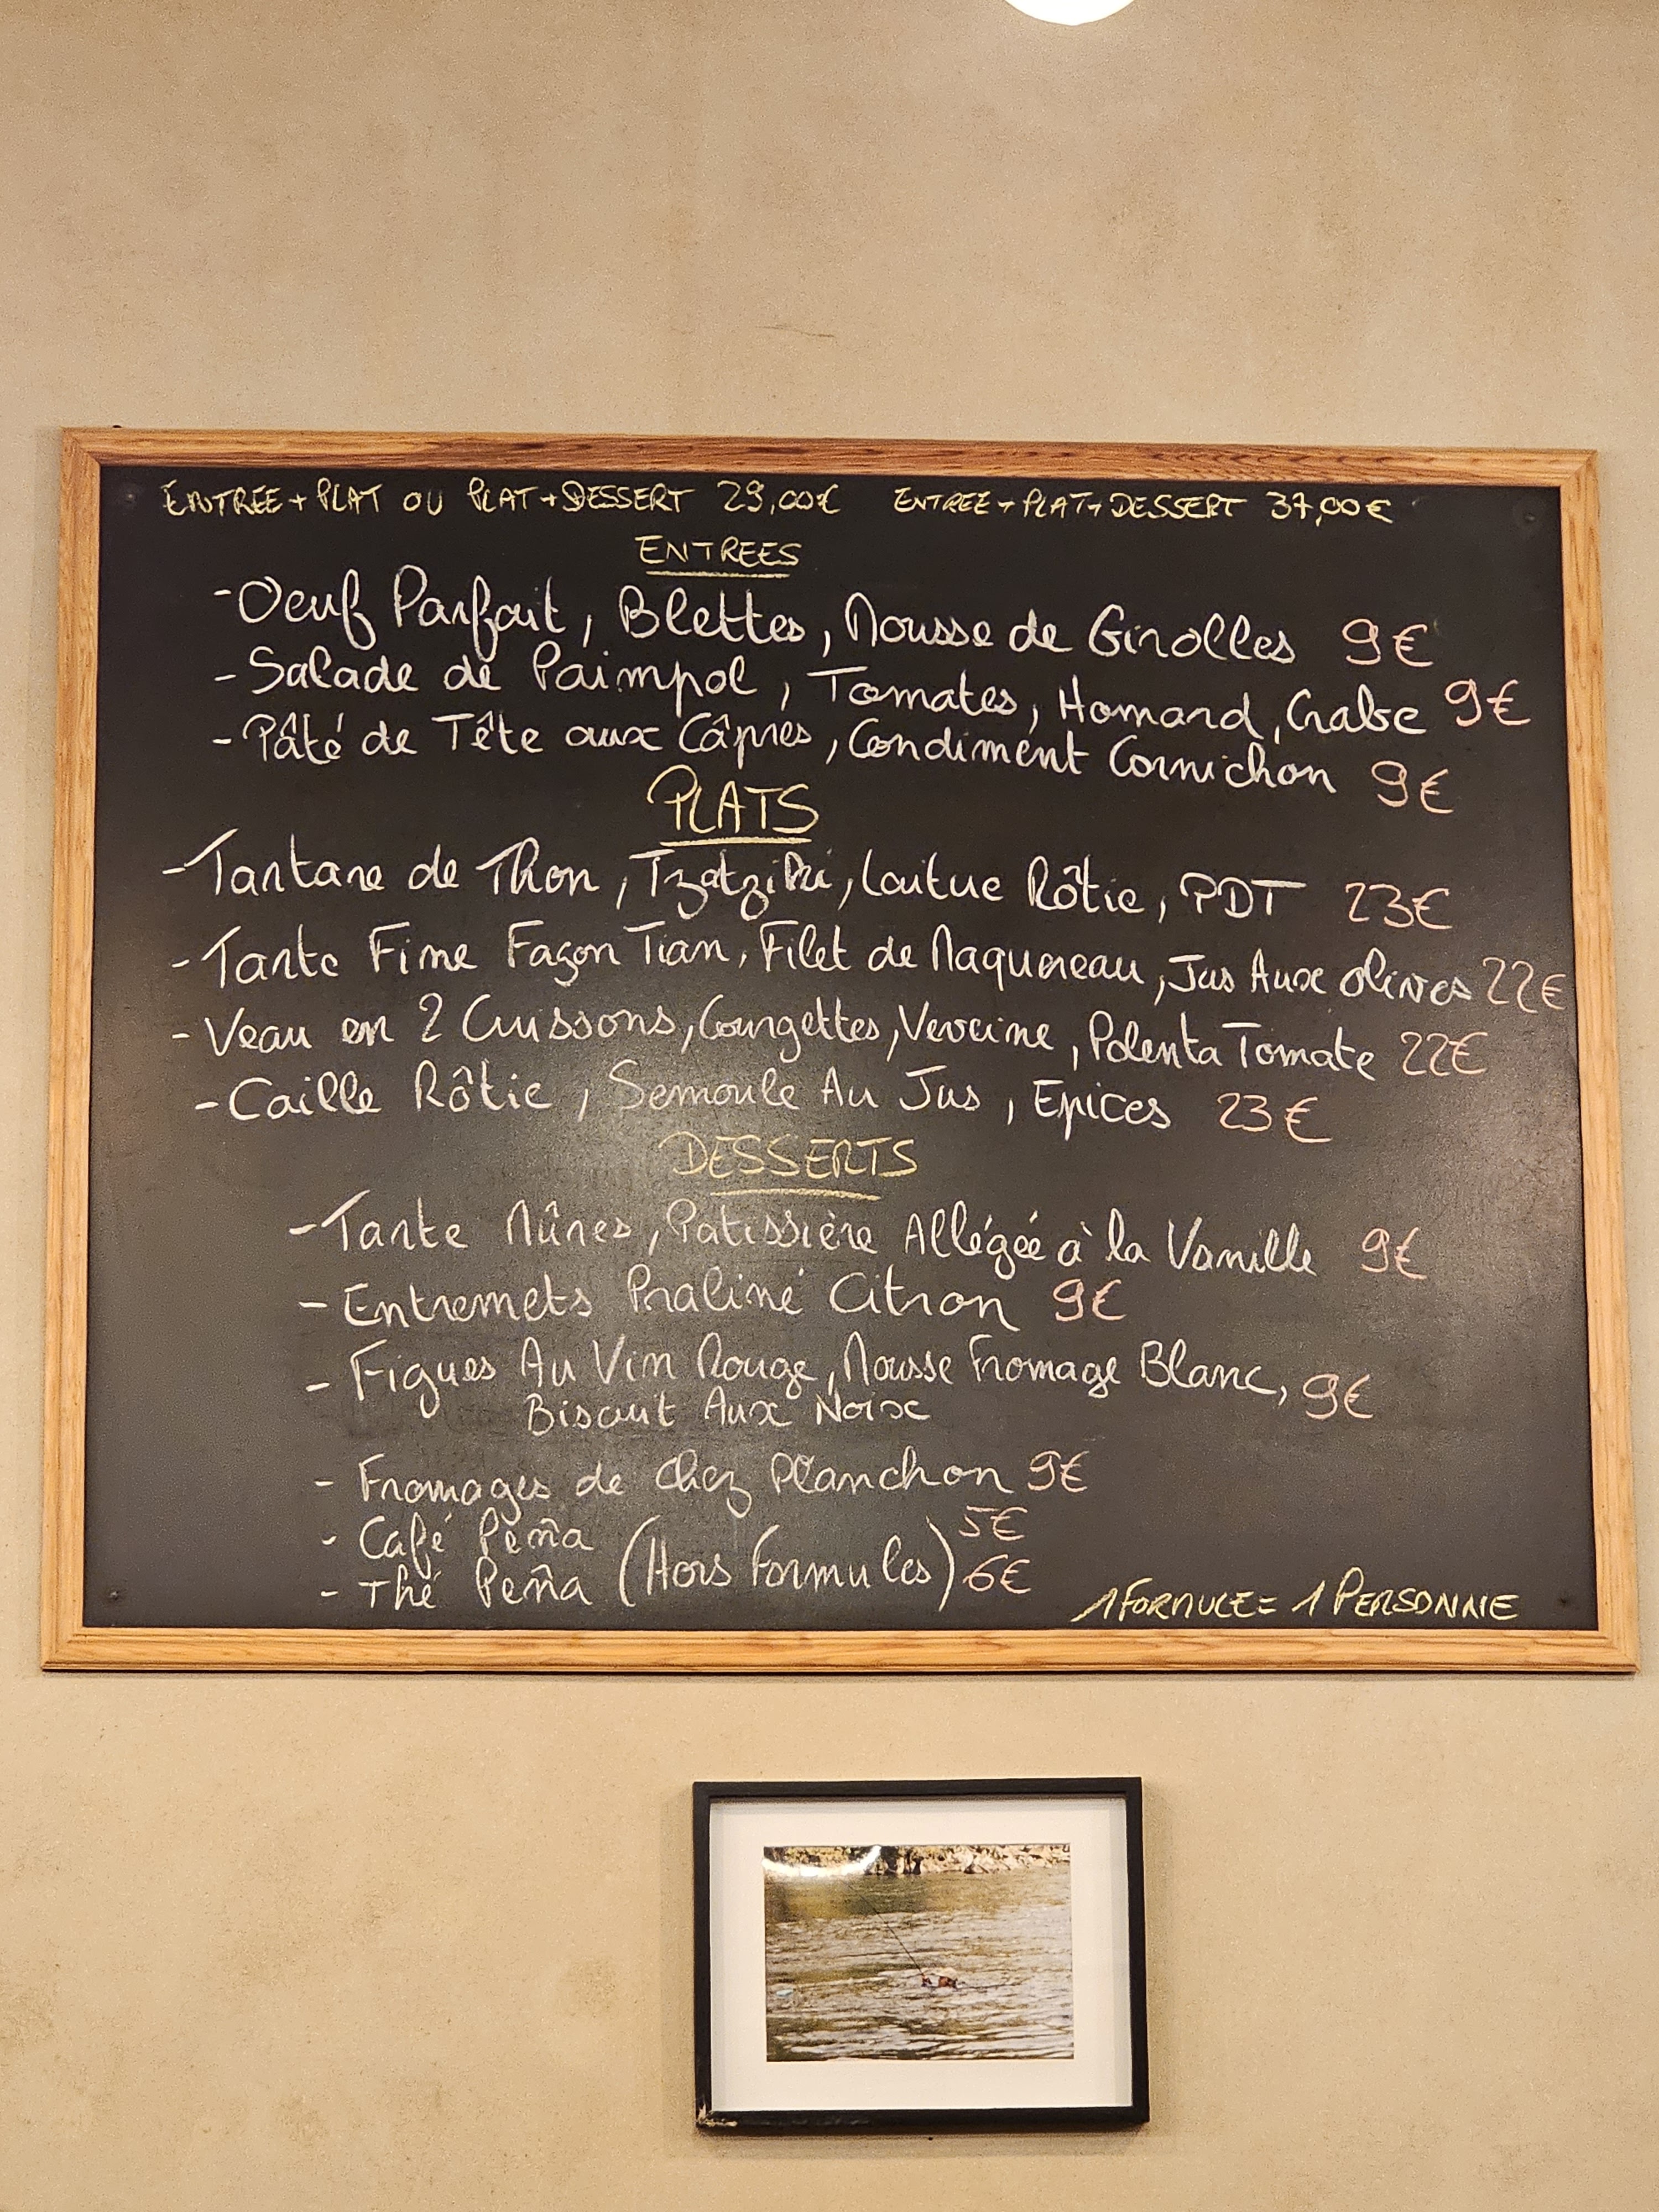 ENTREE + PLAT OU PLAT + DESSERT 29,00€ ENTREE + PLAT + DESSERT 37,00€
ENTREES
- Oeuf Parfait, Blettes, Mousse de Girolles 9€
- Salade de Paimpol, Tomates, Homard, Crabe 9€
- Pâté de Tête aux Câpres, Condiment Cornichon 9€
PLATS
- Tartare de Thon, Tzatziki, Laitue Rôtie, PDT 23€
- Tarte Fine Façon Tian, Filet de Maquereau, Jus Aux Olives 22€
- Veau en 2 Cuissons, Courgettes, Verveine, Polenta Tomate 22€
- Caille Rôtie, Semoule Au Jus, Epices 23€
DESSERTS
- Tarte Mûres, Patissière Allégée à la Vanille 9€
- Entremets Praliné Citron 9€
- Figues Au Vin Rouge, Mousse Fromage Blanc, 9€
Biscuit Aux Noix
- Fromages de chez Planchon 9€
- Café Peña 5€
- Thé Peña (Hors Formules) 6€
1 FORMULE = 1 PERSONNE